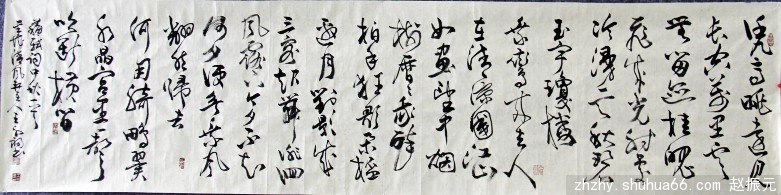 凭高眺远见
长空万里云
无留迹桂魄
飞来光射处
冷浸一天秋碧
玉宇琼楼
乘鸾来去人
在清凉国江山
如画望中烟
树历历我醉
拍手狂歌举杯
邀月对影成
三客起舞徘徊
风露下今夕不知
何夕便欲乘风
翻然归去
何用骑鹏翼
水晶宫里一声
吹断横笛
苏轼词中秋
zhzhy.shuhua66.com 赵振元